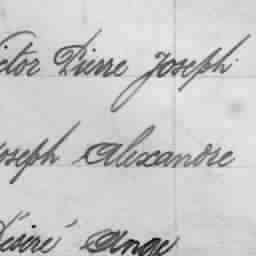 ictor Pierre Joseph
oseph Alexandre
Désiré Ange